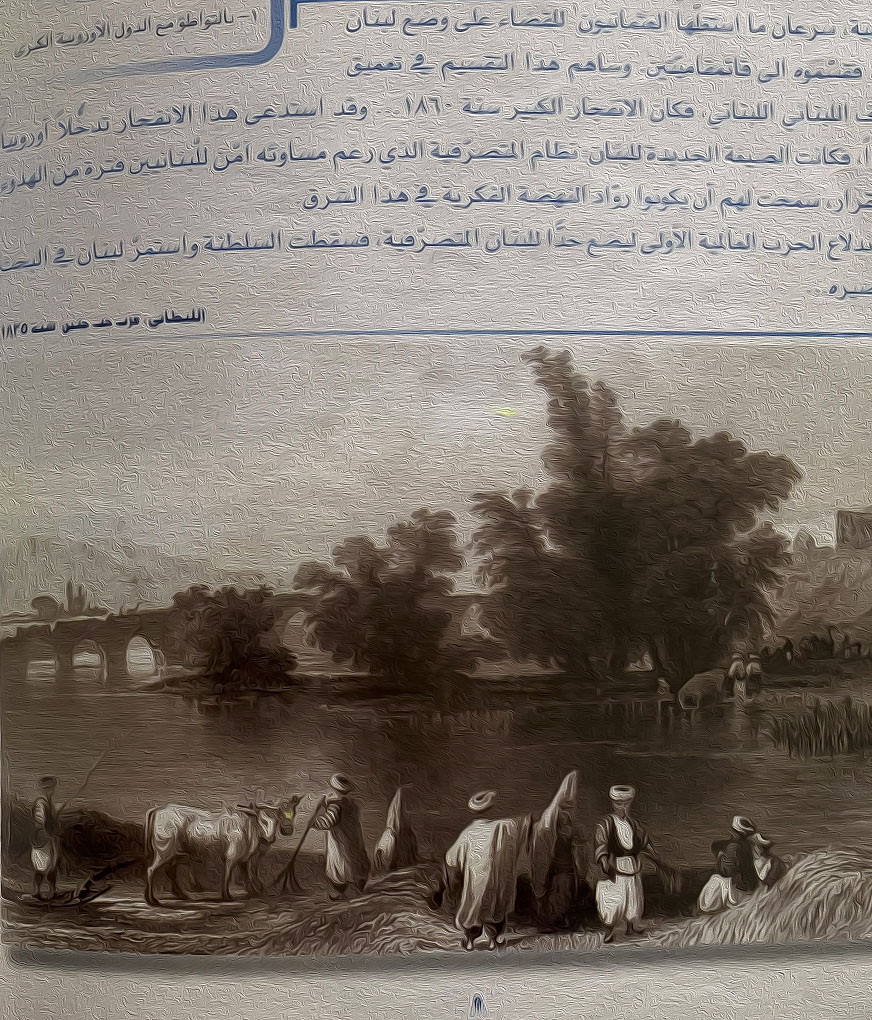 ١- بالتواطؤ مع الدول الأوروبية الكبرى
سرعان ما استغلّها العثمانيون للقضاء على وضع لبنان
فقسّموه الى قائمقاميتين. وساهم هذا التقسيم في تعميق
اللبناني اللبناني. فكان الانفجار الكبير سنة ١٨٦٠... وقد استدعى هذا الانفجار تدخّلاً أوروبيا
فكانت الصيغة الجديدة للبنان نظام المتصرّفية الذي رغم مساوئه أمّن للّبنانيين فترة من الهدوء
سمحت لهم أن يكونوا روّاد النهضة الفكرية في هذا الشرق.
الحرب العالمية الأولى ليضع حدًّا للبنان المتصرّفية، فسقطت السلطنة واستمرّ لبنان في
الليطاني قرب جب جنين سنة ١٨٣٥